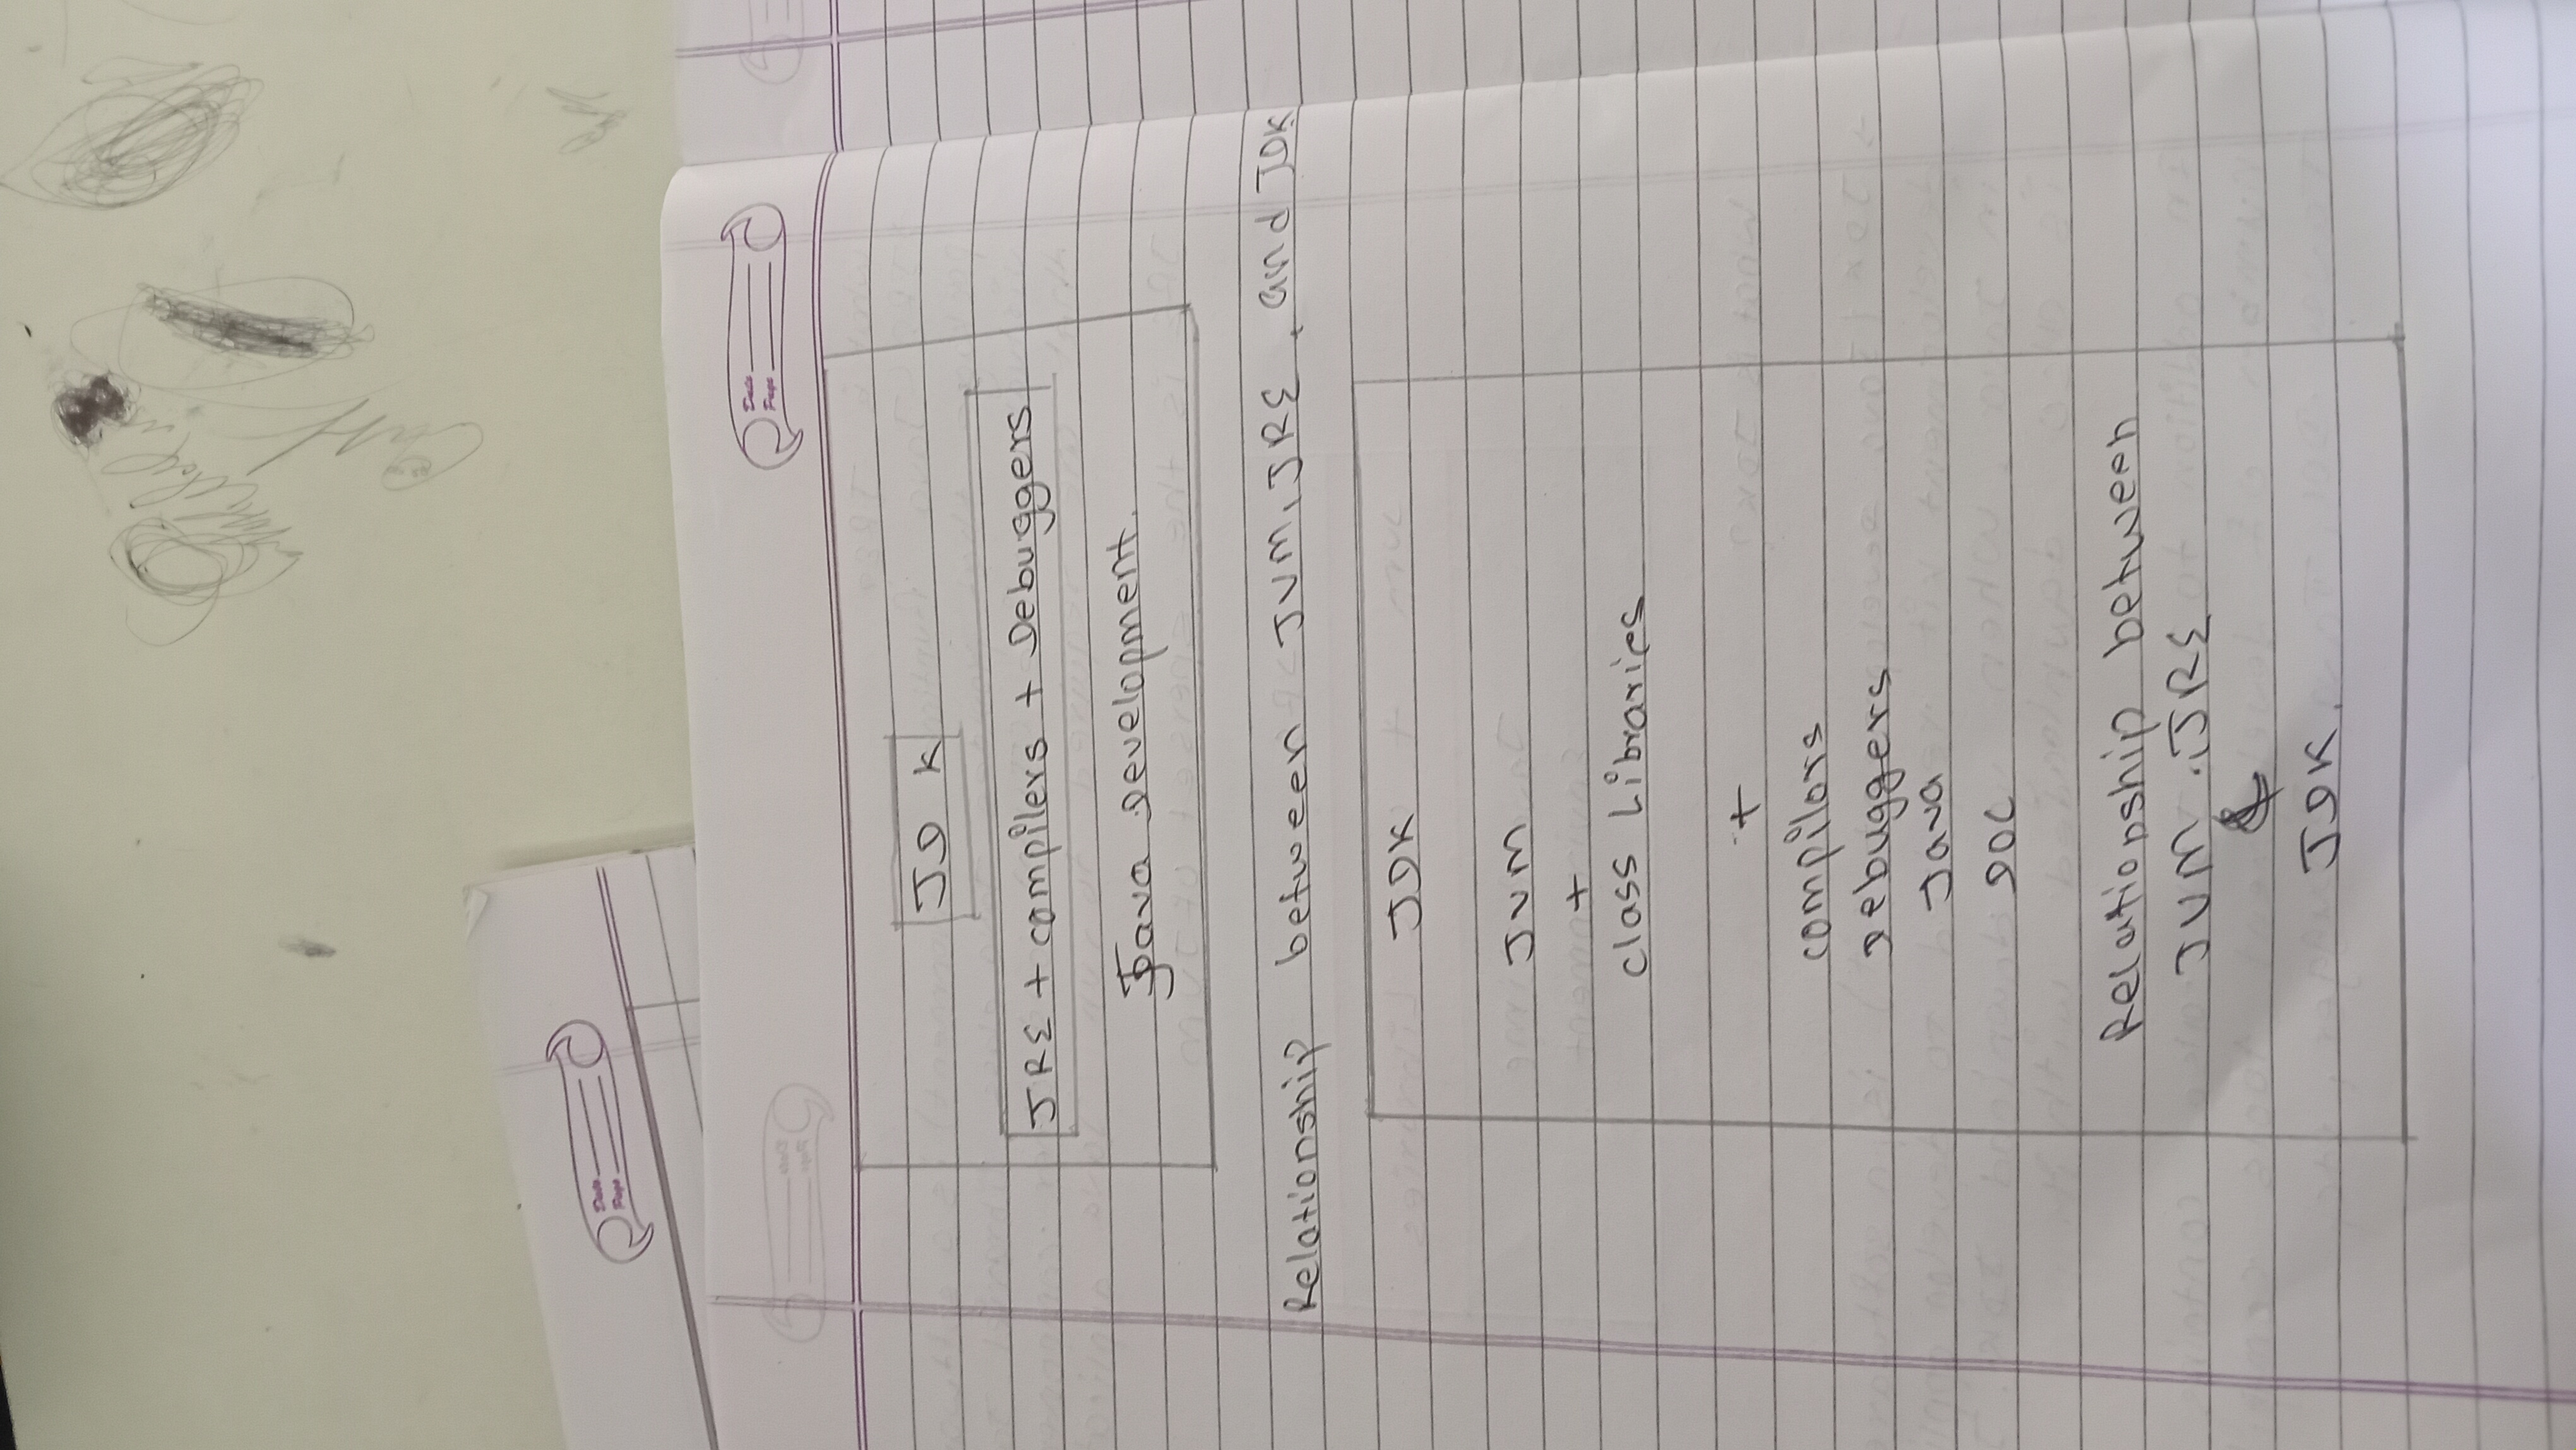 Date
Page
Date
Page
JDK
JRE + compilers + Debuggers
Java Development.
Relationship between JVM, JRE, and JDK
JDK
JVM
+
class Libraries
+
compilors
Debuggers
Java
DOC
Relationship between
JVM, JRE
&
JDK.